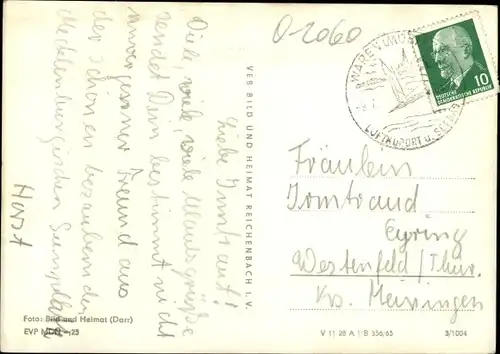 O-2060
Liebe Irmtraut!
Viele, viele, viele Urlaubsgrüße
sendet Dir bestimmt nicht
vergessener Freund aus
der schönen bezaubernden
Mecklenburgischen Seenplatte
Horst
VEB BILD UND HEIMAT REICHENBACH I. V.
WAREN (MÜRITZ)
LUFTKURORT u.
10
DEUTSCHE
DEMOKRATISCHE REPUBLIK
Fräulein
Irmtraud
Eyring
Westenfeld / Thür.
Krs. Meiningen
Foto: Bild und Heimat (Darr)
EVP MDN -,25
V 11 28 A 1 B 356/65
3/1004